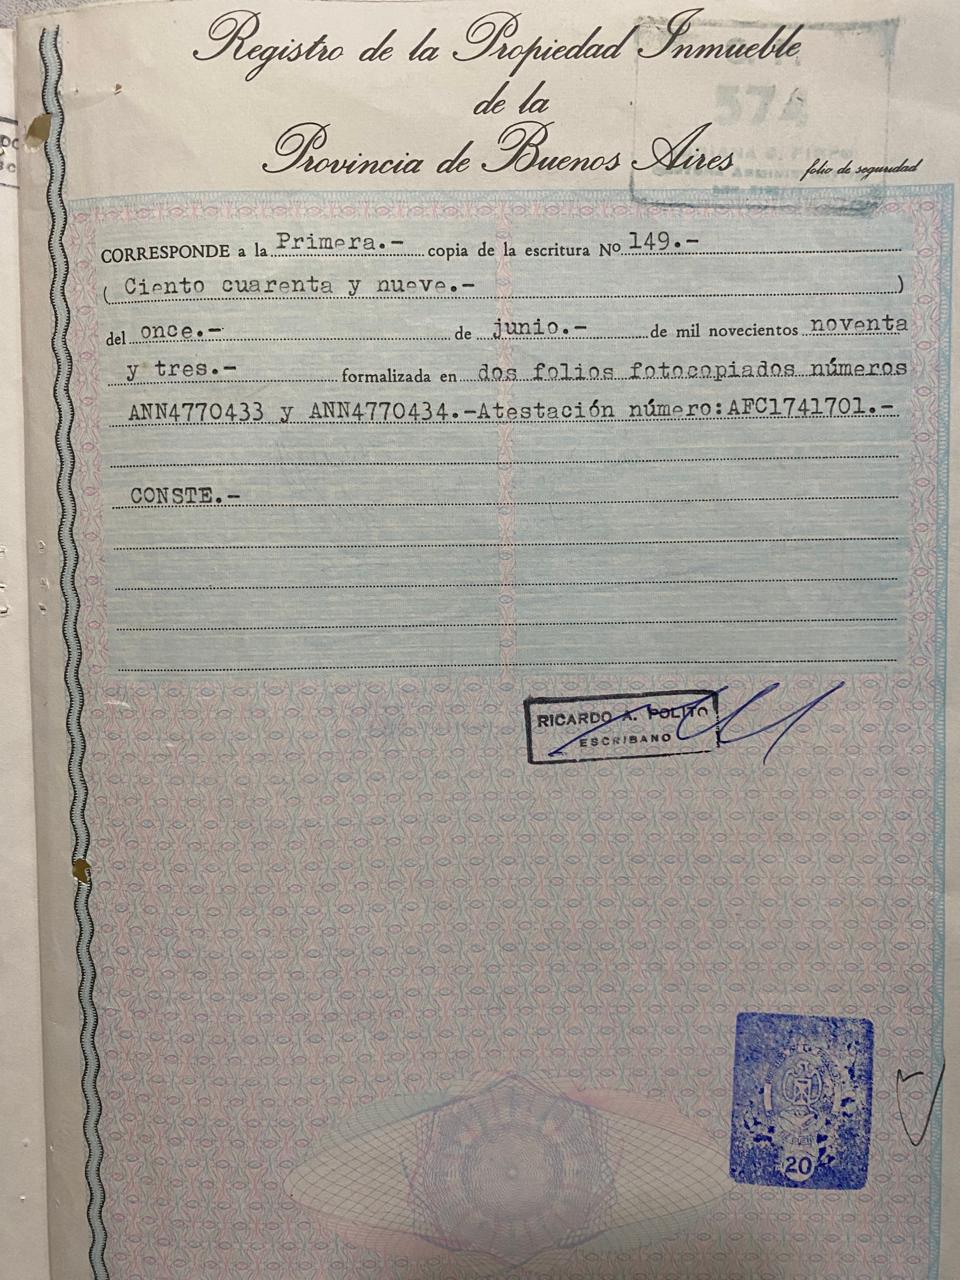 Registro de la Propiedad Inmueble
de la
Provincia de Buenos Aires
folio de seguridad
574
CORRESPONDE a la Primera.- copia de la escritura Nº 149.-
( Ciento cuarenta y nueve.- )
del once.- de junio.- de mil novecientos noventa
y tres.- formalizada en dos folios fotocopiados números
ANN4770433 y ANN4770434.-Atestación número:AFC1741701.-
CONSTE.-
RICARDO A. POLITO
ESCRIBANO
20